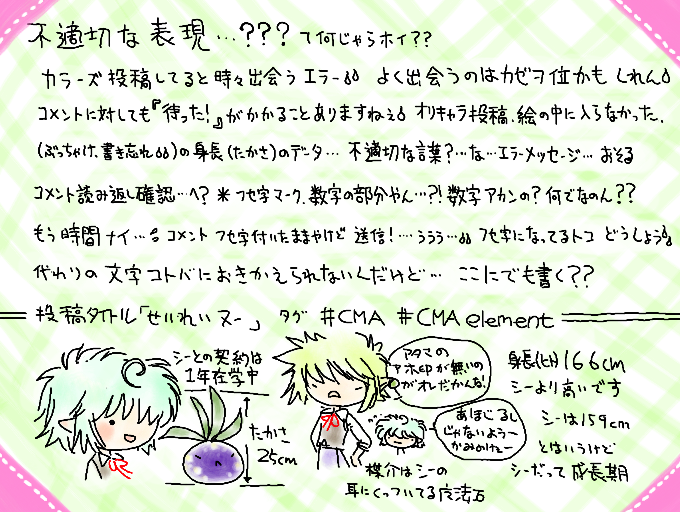 不適切な表現…??? って何じゃらホイ??
カラーズ投稿してると時々出会うエラー よく出会うのはカゼヲ位かもしれん
コメントに対しても『待った!』がかかることありますねぇ オリキャラ投稿、絵の中に入らなかった、
(ぶっちゃけ、書き忘れ)の身長(たかさ)のデータ… 不適切な言葉?…な…エラーメッセージ… おそる
コメント読み返し確認…へ? *フセ字マーク、数字の部分やん…?! 数字アカンの? 何でなのん??
もう時間ナイ… コメント フセ字付いたままやけど 送信!…ううう… フセ字になってるトコ どうしよう
代わりの文字コトバにおきかえられないんだけど… ここにでも書く??
投稿タイトル「せいれいヌー」 タグ #CMA #CMA element
シーとの契約は
1年在学中
たかさ
25cm
アタマの
アホ印が無いの
がオレだかんな!
あほじるし
じゃないようー
かみのけだー
媒介はシーの
耳にくっついてる魔法石
身長(ヒト)166cm
シーより高いです
シーは159cm
とはいうけど
シーだって成長期